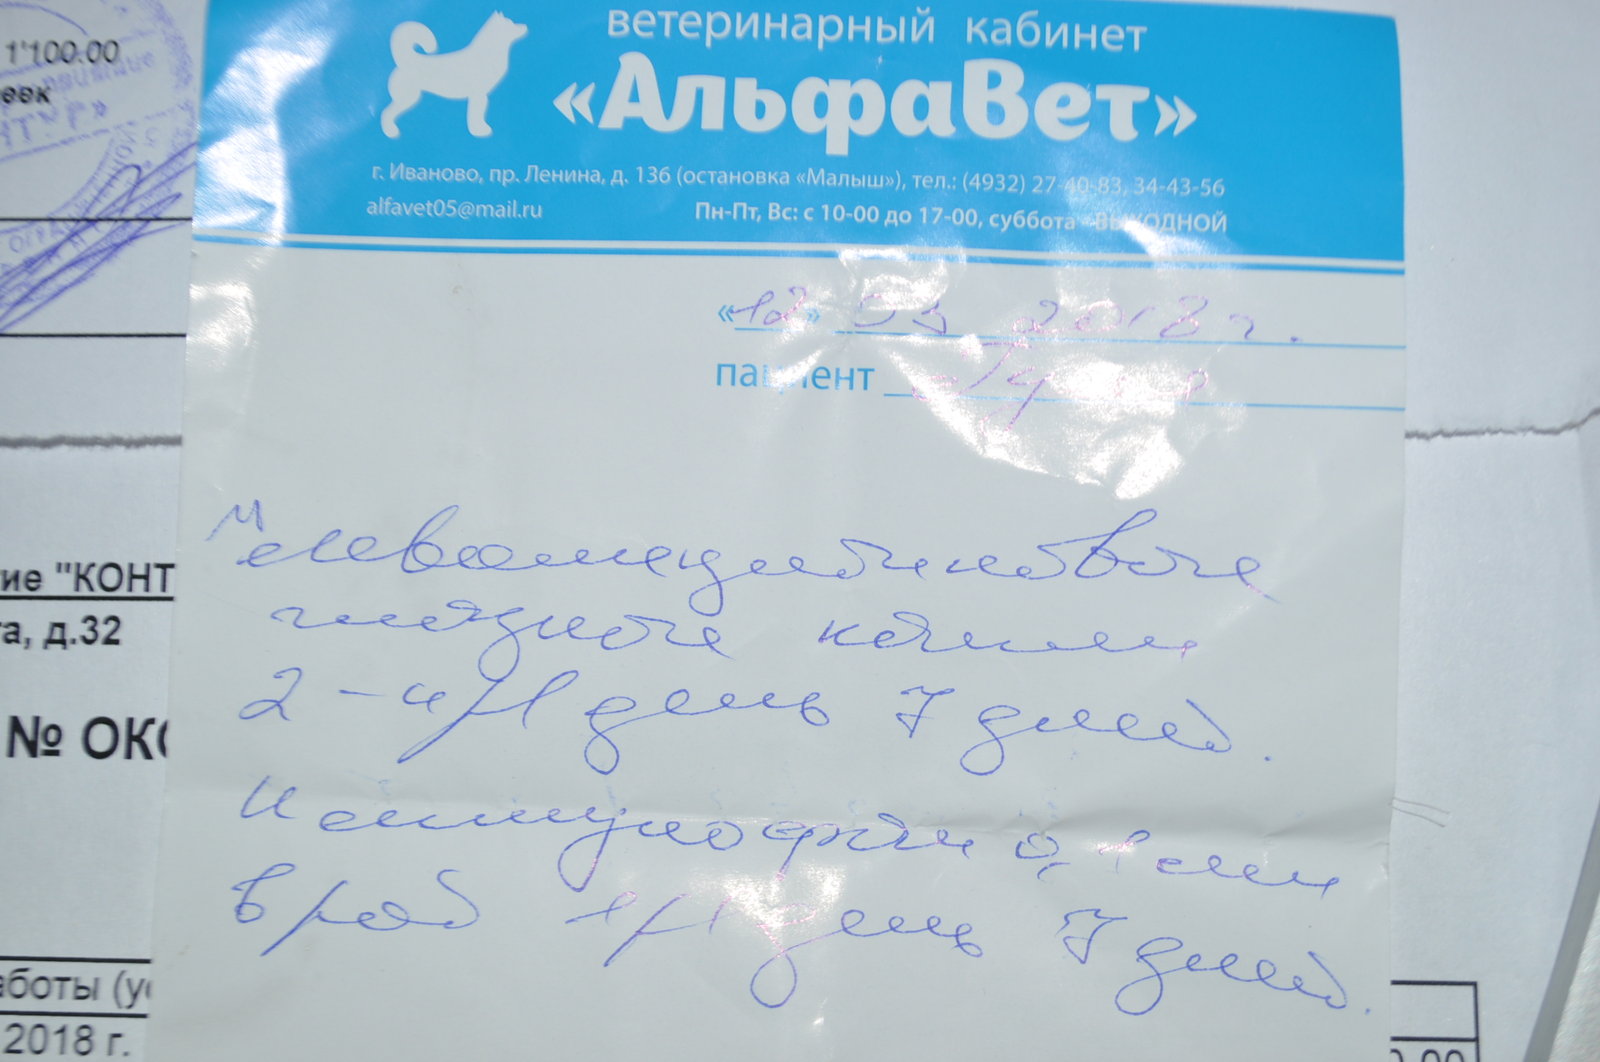 1'100.00
ветеринарный кабинет
«АльфаВет»
г. Иваново, пр. Ленина, д. 136 (остановка «Малыш»), тел.: (4932) 27-40-83, 34-43-56
alfavet05@mail.ru
Пн-Пт, Вс: с 10-00 до 17-00, суббота -ВЫХОДНОЙ
«12» 03 2018 г.
пациент
Левомицетиновые
глазные капли
2-4/1 день 7 дней.
Иммунофан 0,1 мл
в рот 1/1 день 7 дней.
ие "КОНТ
а, д.32
№ ОКО
аботы (ус
2018 г.